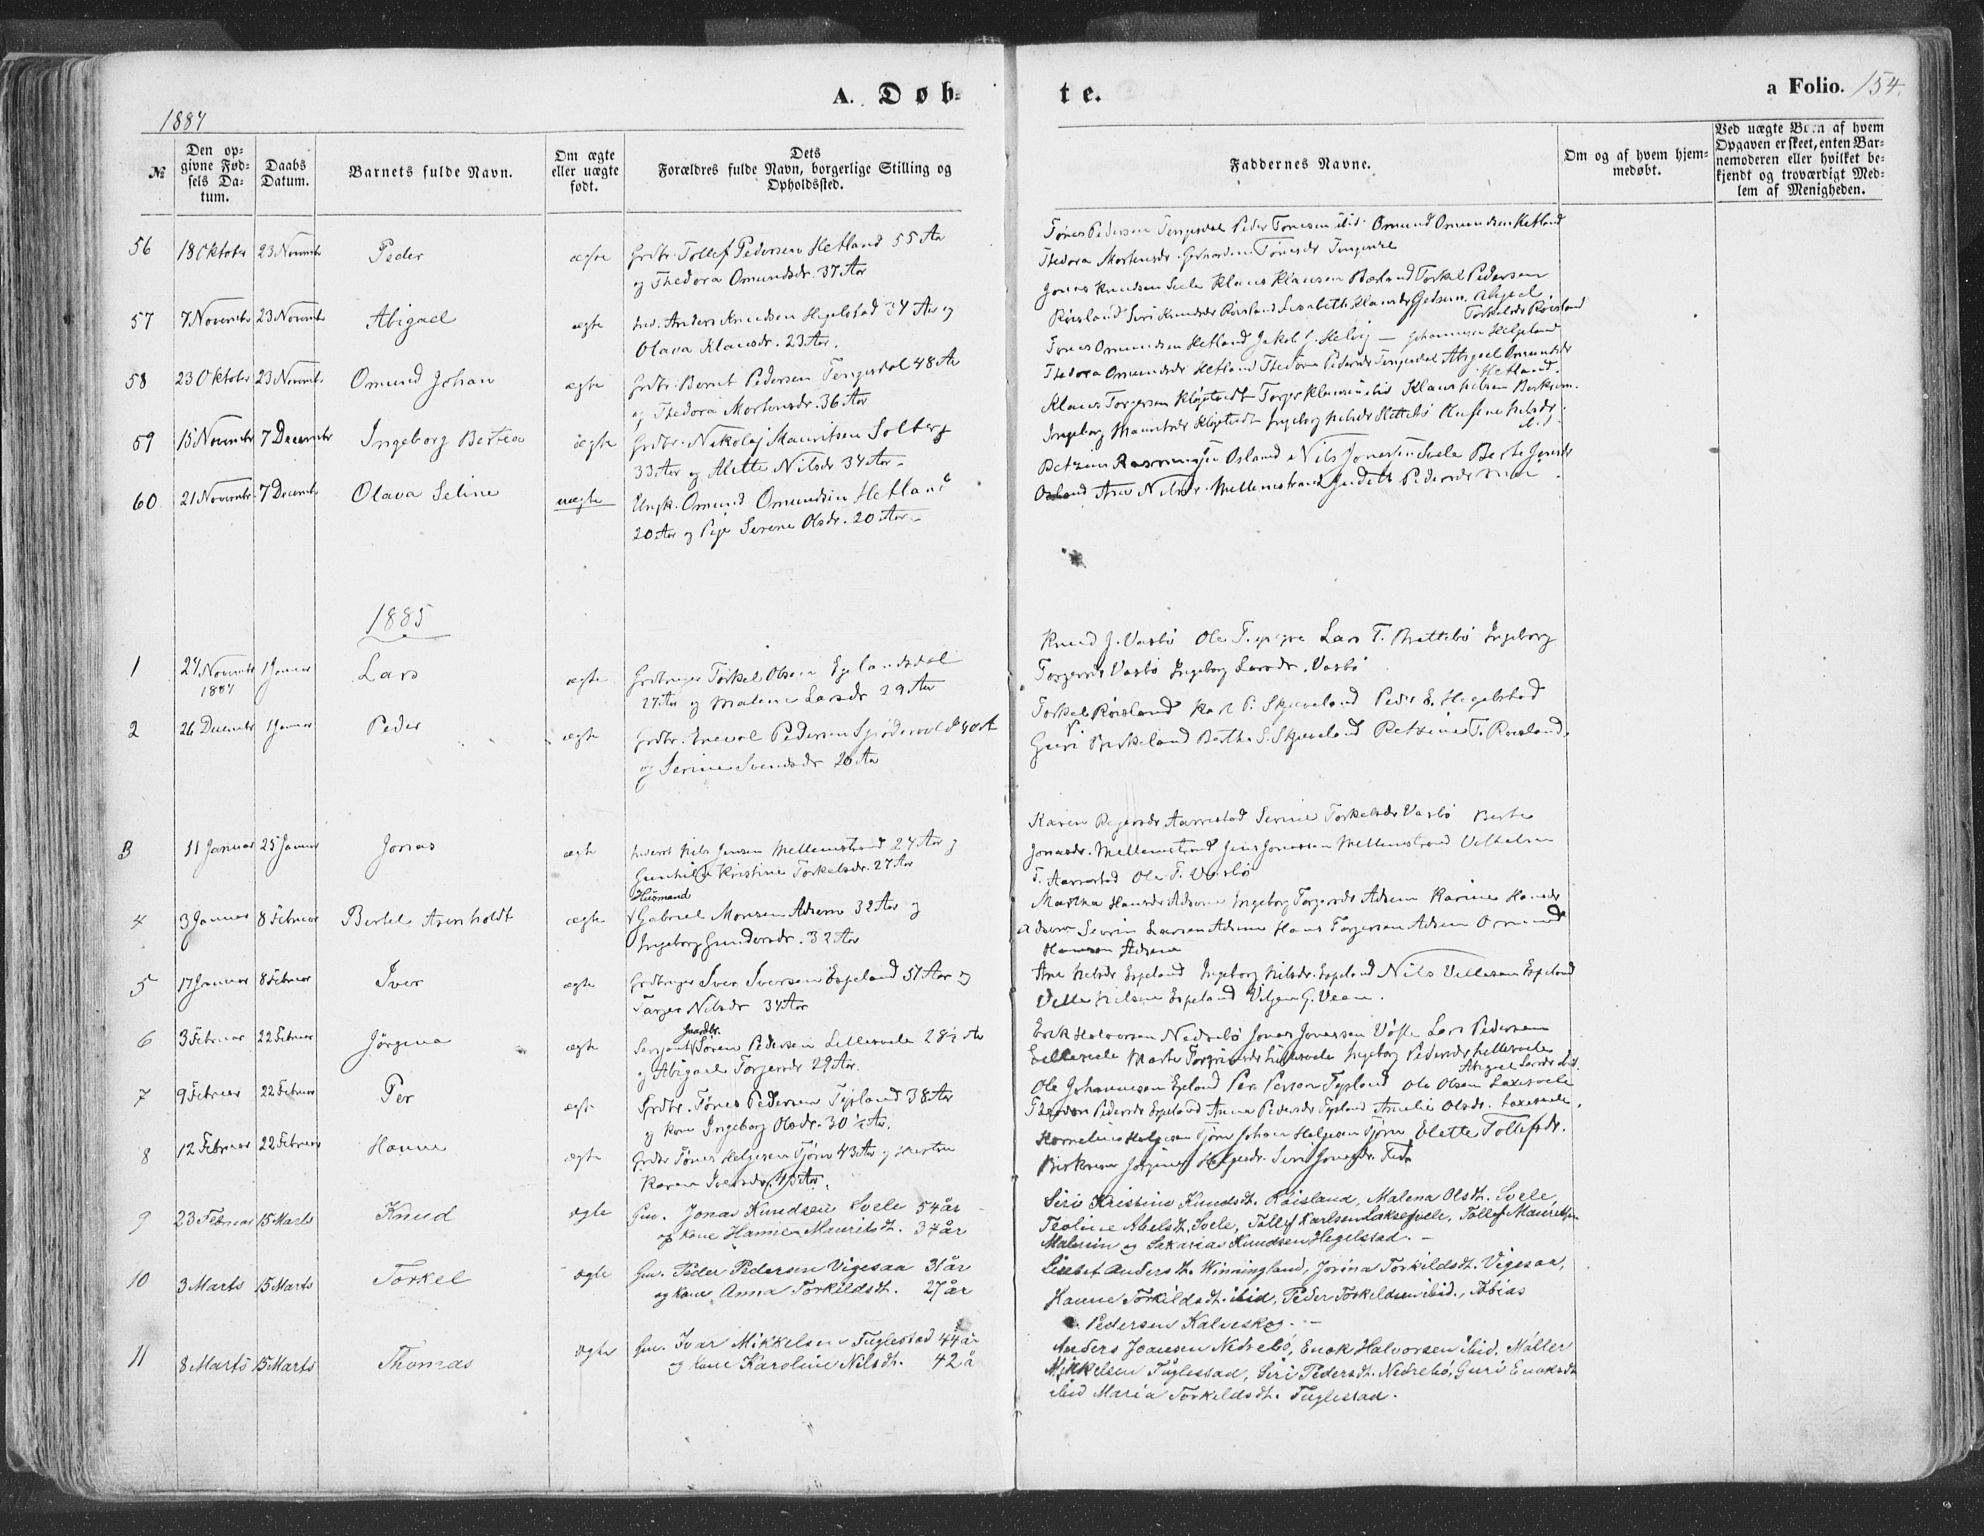 A. Døb-
te.
a Folio. 154.
1884
№
Den opgivne Fødsels Datum.
Daabs Datum.
Barnets fulde Navn.
Om ægte eller uægte født.
Dets Forældres fulde Navn, borgerlige Stilling og Opholdssted.
Faddernes Navne.
Om og af hvem hjemmedøbt.
Ved uægte Børn af hvem Opgaven er skeet, enten Barnemoderen eller hvilket bekjendt og troværdigt Medlem af Menigheden.
56 18 Oktober 23 Novembr Peder ægte Grdbr. Tollef Pedersen Hetland 55 Aar
og Thedora Omundsdr. 37 Aar
Tønes Pedersen Tengesdal Peder Tønesen ibid. Omund Omundsen Hetland
Thedora Mortensdr. Tønesdr Tengesdal
57 7 Novembr 23 Novembr Abigael ægte Ind. Anders Knudsen Hegelstad 34 Aar og
Olava Klausdr. 23 Aar.
Jonas Knudsen Svele Klaus Klausen Torkel Pedersen
Røisland Siri Knudsdr Røisland Lisabeth Klausdr Abigael
Torkelsdr Røisland
58 23 Oktobr 23 Novembr Omund Johan ægte Grdbr. Bernt Pedersen Tengesdal 48 Aar
og Thedora Mortensdr. 36 Aar
Tønes Omundsen Hetland Jakob J. Helvig — Johannesen Helgeland
Thedora Omundsdr Hetland Thedora Pedersdr Tengesdal Abigael Omundsdr
Hetland.
59 15 Novembr 7 Decembr Ingeborg Bertea ægte Grdbr. Nikolaj Mauritsen Solberg
33 Aar og Alette Nilsdr 34 Aar.
Klaus Torgersen Torger Klausen ibid Klaus Nilsen Birkrem.
Ingeborg Mauritsdr Ingeborg Nilsdr Nilsdr
ibid.
60 21 Novembr 7 Decembr Olava Seline uægte Ungk. Omund Omundsen Hetland
20 Aar og Pige Serene Olsdr. 20 Aar.
Rasmussen Osland Nils Jonassen Svele Berte Jonsdr
Osland Ane Nilsdr. Mellemstrand Judith Pedersdr
1885
1 24 Novembr 1884 1 Januar Lars ægte Grdbruger Torkel Olsen Eglandsdal
27 Aar og Malene Larsdr 29 Aar
Knud J. Vasbø Ole T. Lars T. Ingeborg
Torgersdr Vasbø Ingeborg Larsdr. Vasbø
2 26 Decembr 1 Januar Peder ægte Grdbr. Enevol Pedersen
og Serine Svendsdr 26 Aar
Torkel Røisland Karl P. Skjæveland Peder E. Hegelstad
Guri Birkeland Berthe S. Skjæveland Retzine T. Røisland.
3 11 Januar 25 Januar Jonas ægte Inderst Nils Jensen Mellemstrand 24 Aar og
Gunhild Kristine Torkelsdr. 27 Aar
Karen Aarrestad Serine Torkelsdr Vasbø Berte
Jonasdr. Mellemstrand Jens Jonassen Mellemstrand Vilhelm
T. Aarrestad Ole T. Vasbø
4 3 Januar 8 Februar Bertel Arenholdt ægte Husmand
Gabriel Monsen Adsem 32 Aar og
Ingeborg Gundersdr. 32 Aar
Martha Hansdr Adsem Ingeborg Torgersdr Adsem Karine Hansdr
Adsem Sevrin Larsen Adsem Hans Torgersen Adsem Omund
Hansen Adsem
5 17 Januar 8 Februar Iver ægte Grdbruger Iver Iversen Espeland 51 Aar og
Torger Nilsdr 34 Aar
Ane Nilsdr Espeland Ingeborg Nilsdr. Espeland Nils Villesen Espeland
Ville Nilsen Espeland G. Veen.
6 3 Februar 22 Februar Jørgina ægte Gaardbr.
Sergeant Søren Pedersen Lillesvele 28½ Aar
og Abigael Torgersdr 29 Aar.
Erik Halvorsen Nedrebø Jonas Jonassen Lars Pedersen
Lillesvele Marte Lillesvele Ingeborg Pedersdr Lillesvele
Abigael Larsdr ibid.
7 9 Februar 22 Februar Per ægte Grdbr. Tønes Pedersen Tysland 38 Aar
og Kone Ingeborg Olsdr. 30½ Aar.
Ole Johannesen Espeland Per Persen Tysland Ole Olsen Laxesvele
Theodora Pedersdr Espeland Anna Pedersdr Tysland Amelie Olsdr. Laxesvele.
8 12 Februar 22 Februar Hanne ægte Grdbr Tønes Helgesen Tjørn 43 Aar og Hustru
Karen Iversdr. 45 Aar.
Kornelius Helgesen Tjørn Johan Helgesen Tjørn Elette Tollefsdr.
Birkrem Jørgine Helgesdr. Siri Jonasdr.
9 23 Februar 15 Marts Knud ægte Gm. Jonas Knudsen Svele 54 år
og kone Hanne Mauritsdt. 34 år
Siri Kristine Knudsdt. Røisland, Malena Olsdt. Svele,
Teoline Abelsdt. Svele, Tollef Karlsen Laksesvele, Tollef Mauritsen
Malmin og Sakarias Knudsen Hegelstad. —
10 3 Marts 15 Marts Torkel ægte Gm. Peder Pedersen Vigesaa 31 år
og kone Anna Torkildsdt. 27 år
Lisebet Andersdt. Winningland, Jorina Torkildsdt. Vigesaa,
Hanne Torkildsdt. ibid, Peder Torkeldsen ibid., Tobias
Pedersen Kalveskog. —
11 8 Marts 15 Marts Thomas ægte Gm. Ivar Mikkelsen Fuglestad 44 år
og Kone Karoline Nilsdt. 42 å
Anders Joansen Nedrebø, Enok Halvorsen ibid. Møller
Mikkelsen Fuglestad, Siri Pedersdt. Nedrebø, Guri Enoksdt
ibid Maria Torkildsdt. Fuglestad.